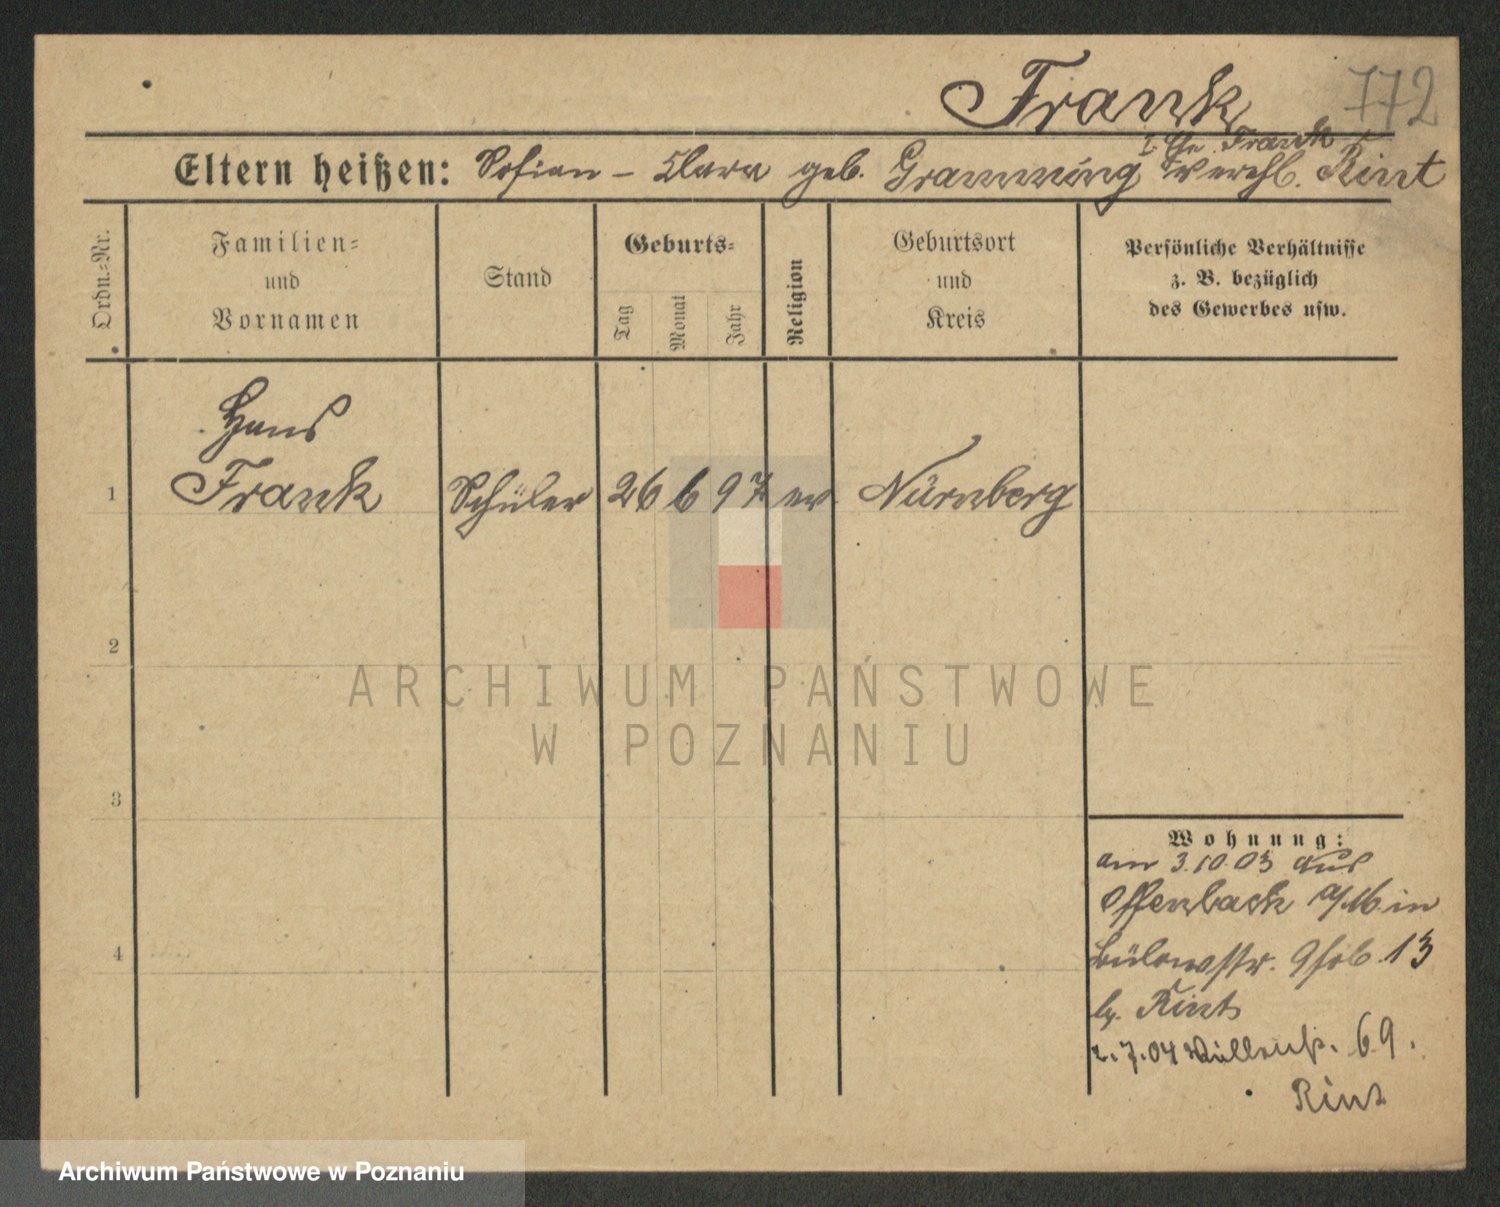 Frank 772
I. Ehe Frank
Eltern heißen: Clara geb. Gramming verehl. Rint
Ordn.-Nr.
Familien-
und
Vornamen
Stand
Geburts-
Tag
Monat
Jahr
Religion
Geburtsort
und
Kreis
Persönliche Verhältnisse
z. B. bezüglich
des Gewerbes usw.
Hans
1 Frank Schüler 26 6 97 ev Nürnberg
2
3
4
Wohnung:
am 3.10.03 aus
Offenbach a/M. in
Bülowstr. 13
by. Rint
2.7.04 69.
Rint
ARCHIWUM PAŃSTWOWE
W POZNANIU
Archiwum Państwowe w Poznaniu